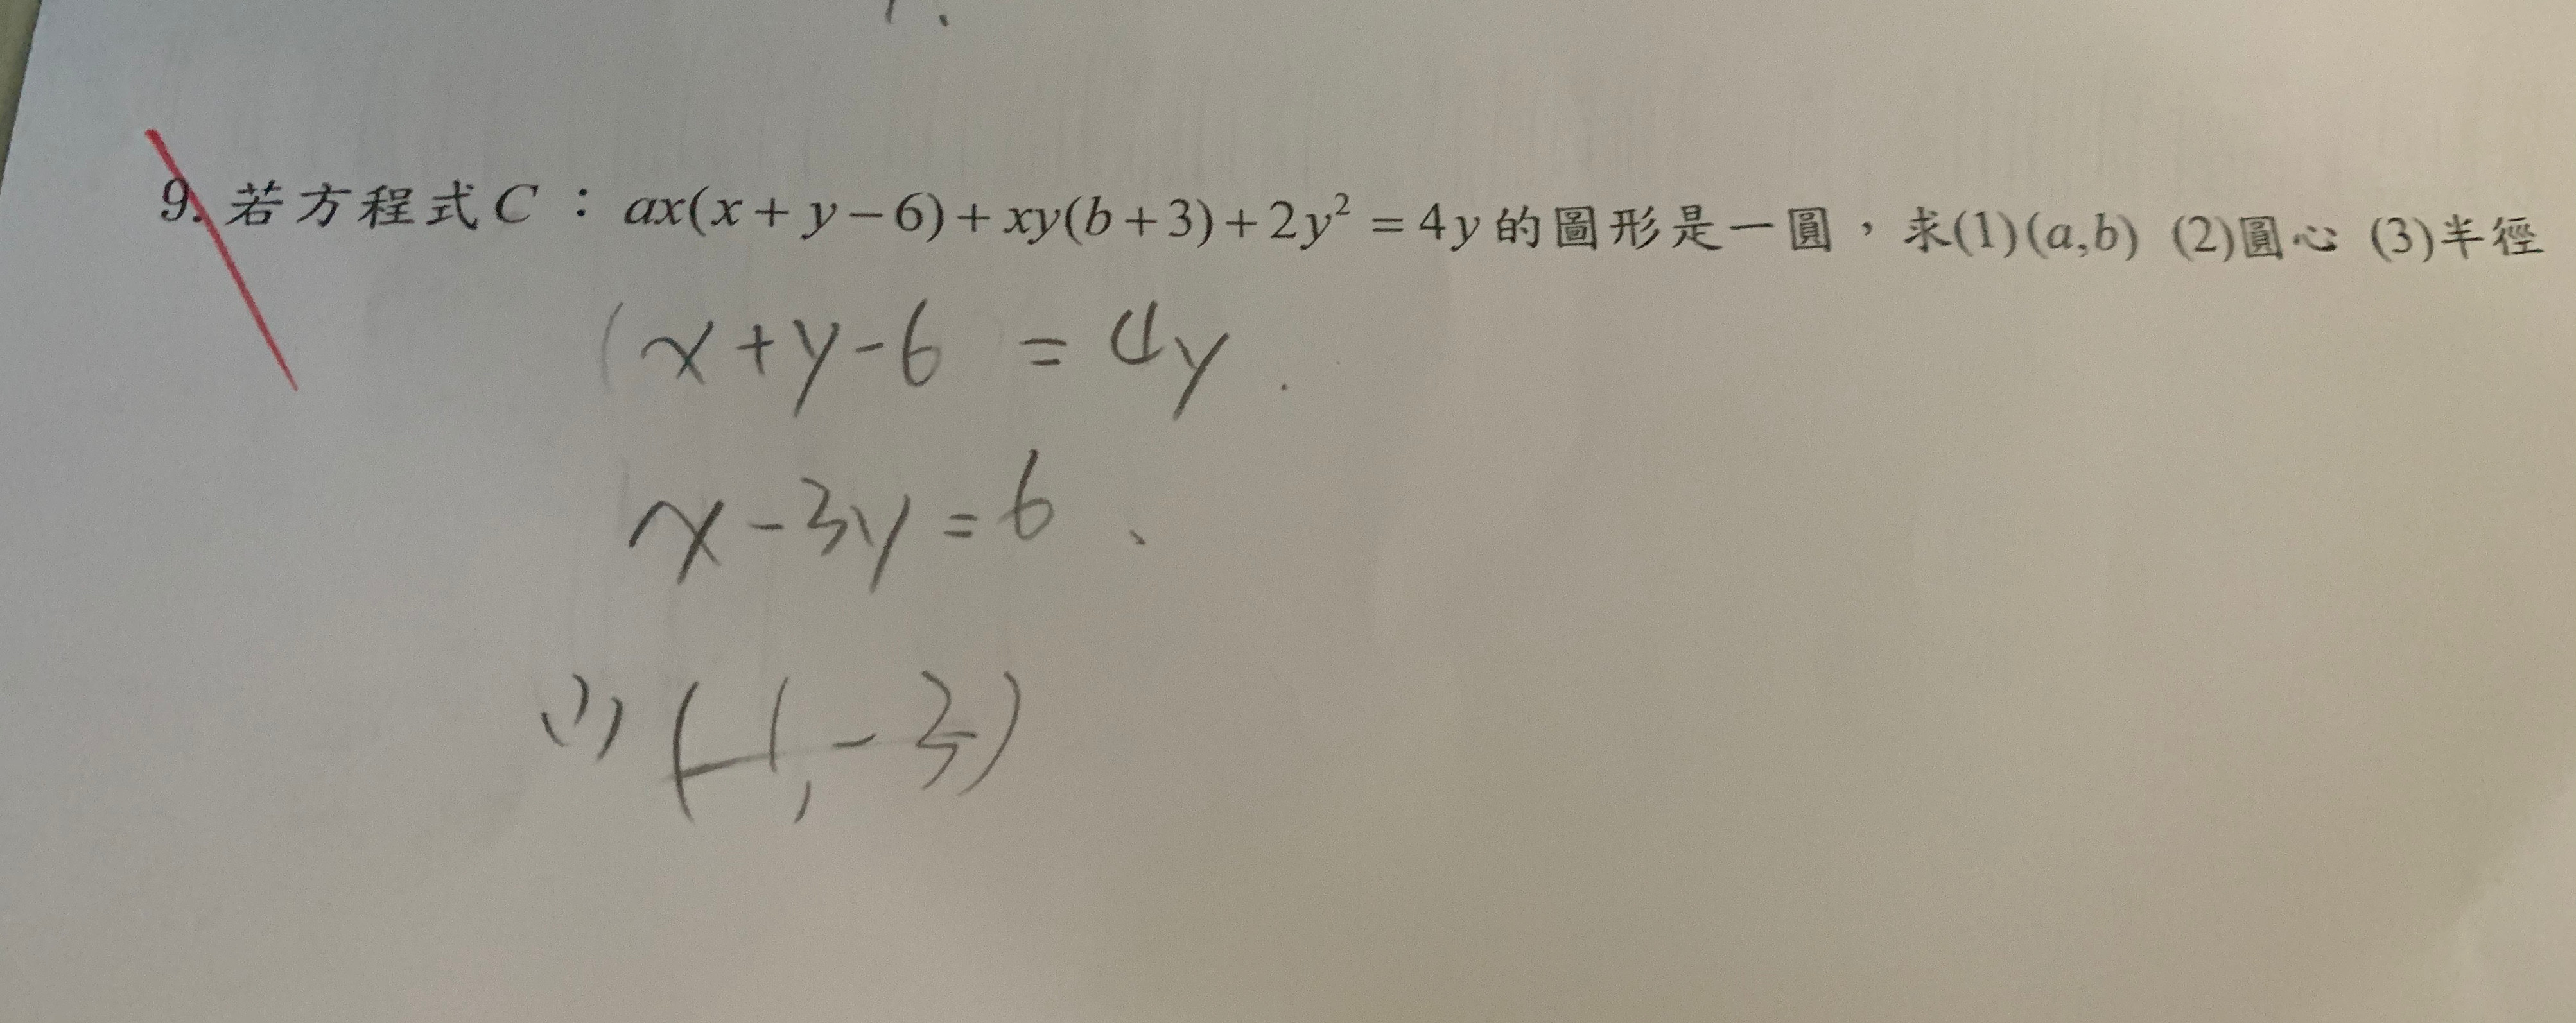 9. 若方程式C：ax(x+y−6)+xy(b+3)+2y²=4y的圖形是一圓，求(1)(a,b) (2)圓心 (3)半徑
(x+y-6 = 4y.
x-3y=6、
(1) (-1,-3)